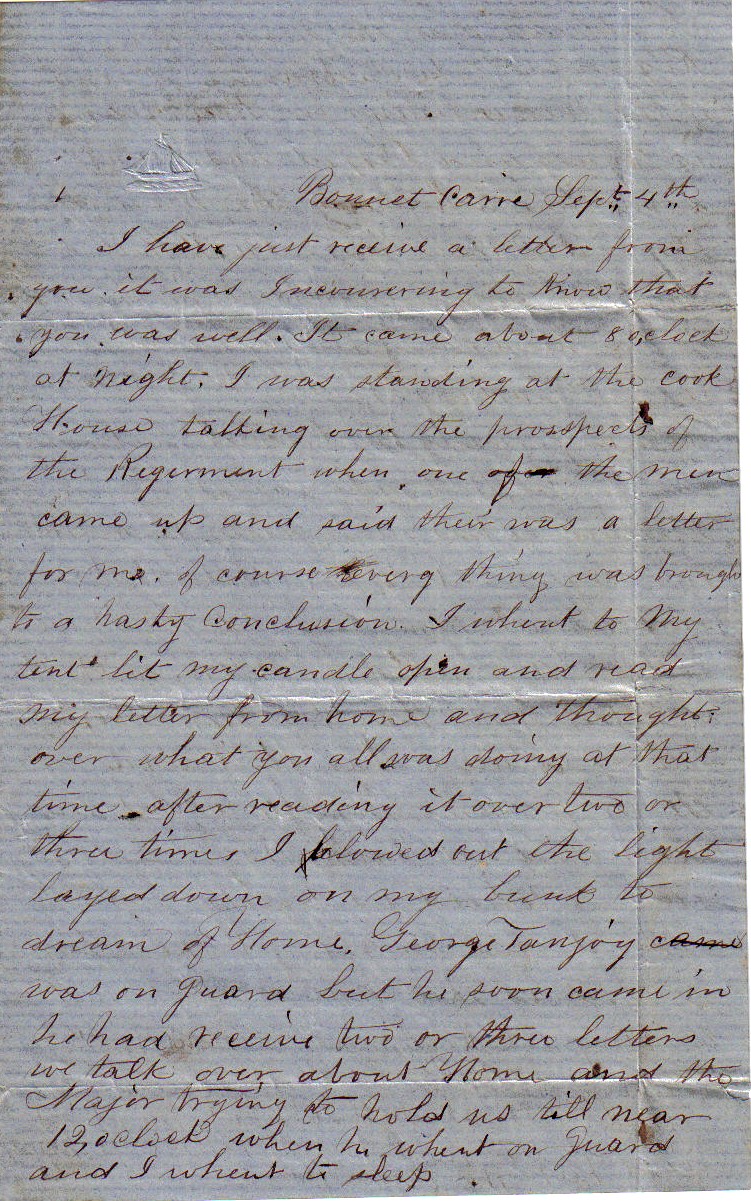 Bonnet Carre Sept. 4th
I have just receive a letter from
you. it was Incourering to know that
you was well. It came about 8 oclock
at Night. I was standing at the cook
House talking over the prosspects of
the Regerment when one of the men
came up and said their was a letter
for me. of course every thing was brough
to a hasty Conclusion. I whent to My
tent lit my candle open and read
my letter from home and thought
over what you all was doing at that
time after reading it over two or
three times I blowed out the light
layed down on my bunk to
dream of Home. George Tanjoy came
was on guard but he soon came in
he had receive two or three letters
we talk over about Home and the
Major trying to hold us till near
12, oclock when he whent on guard
and I whent to sleep.